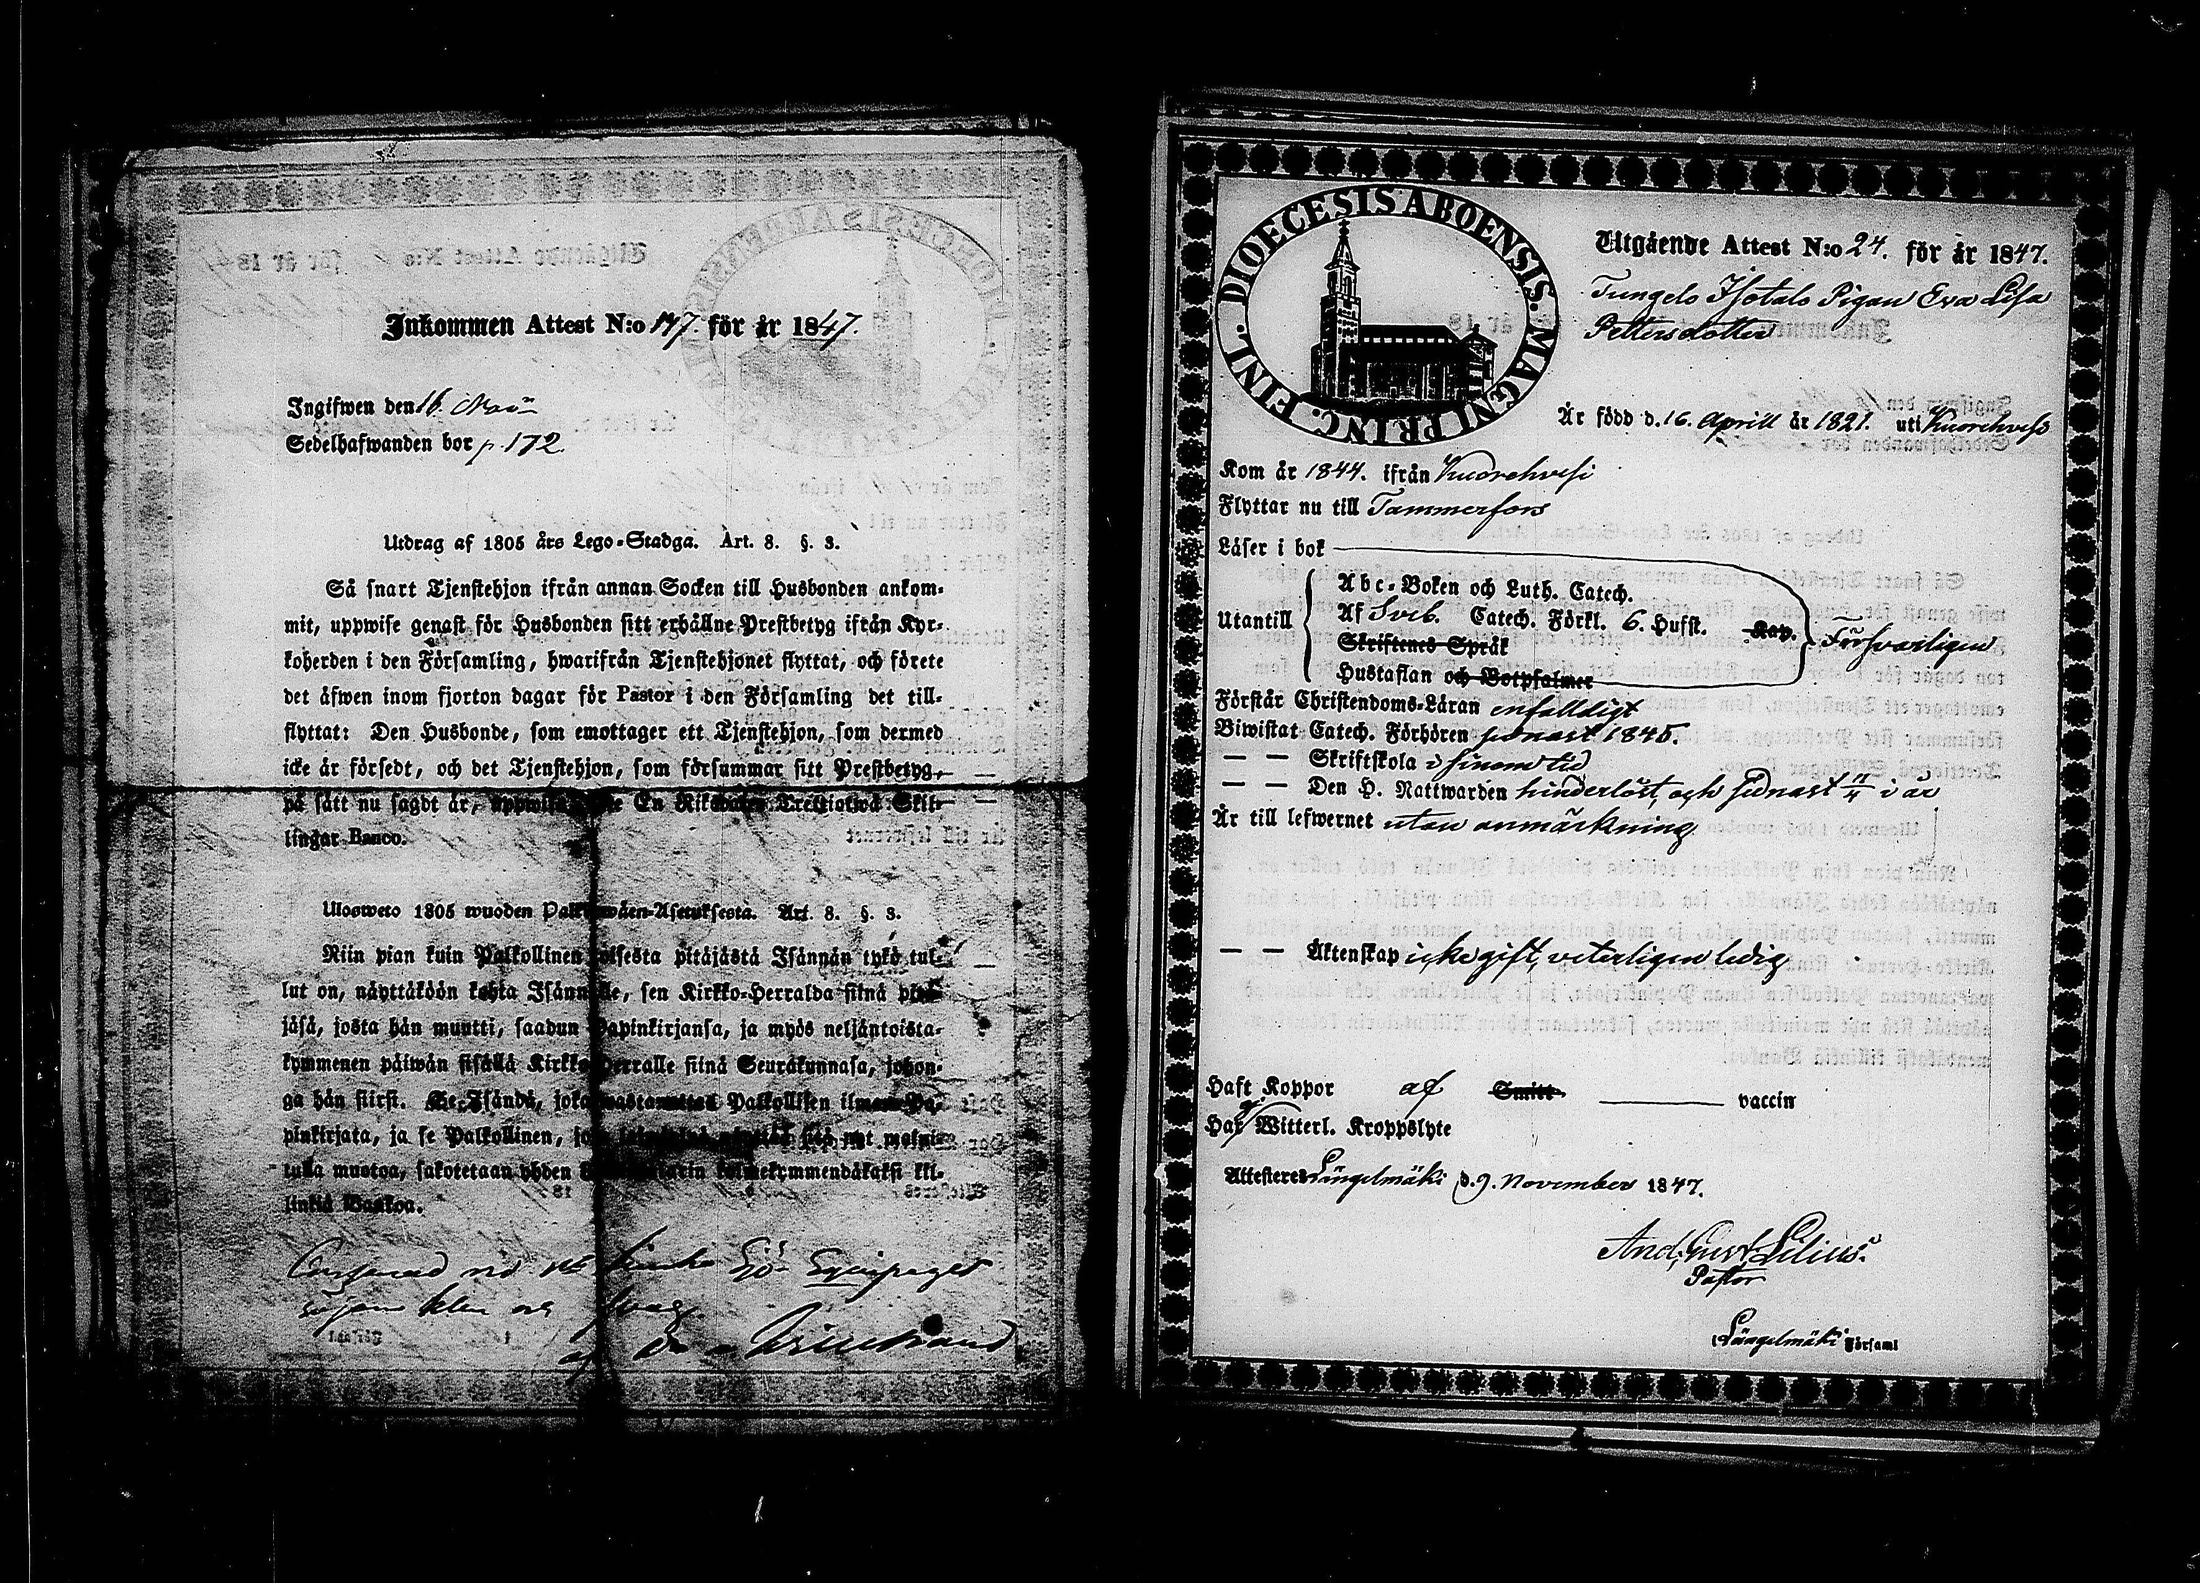 Inkommen Attest N:o 147. för år 1847.
Ingifwen den 16. Nov
Sedelhafwanden bor p. 172
Utdrag af 1805 års Lego-Stadga. Art. 8. §. 3.
Så snart Tjenstehjon ifrån annan Socken till Husbonden ankom-
mit, uppwise genast för Husbonden sitt erhållne Prestbetyg ifrån Kyr-
koherden i den Församling, hwarifrån Tjenstehjonet flyttat, och förete
det äfwen inom fjorton dagar för Pastor i den Församling det till-
flyttat: Den Husbonde, som emottager ett Tjenstehjon, som dermed
icke är försedt, och det Tjenstehjon, som försummar sitt Prestbetyg,
på sätt nu sagdt är, En Riksdaler Trettiotwå Skil-
lingar Banco.
Ulosweto 1805 wuoden Palkkawäen-Asetuksesta. Art. 8. §. 3.
Niin pian kuin Palkollinen toisesta pitäjästä Isännän tykö tul-
lut on, näyttäköön kohta Isännälle, sen Kirkko-Herralda siinä pitä-
jäsä, josta hän muutti, saadun Papinkirjansa, ja myös neljäntoista-
kymmenen päiwän sisällä Kirkko-Herralle siinä Seurakunnasa, johon-
ga hän siirsi. Se Isändä, joka wastanottaa Palkollisen ilman Pa-
pinkirjata, ja se Palkollinen, joka sitä nyt mainit-
tulla muotoa, sakotetaan yhden kolmekymmendäkaksi kil-
linkiä Bankoa.
Sjö-Equipaget
af
DIOECESIS ABOENSIS. MAGNI PRINC. FINL.
Utgående Attest N:o 24. för år 1847.
Tungelo Isotalo Pigan Eva Lisa
Pettersdotter
Är född d. 16. Aprill år 1821. uti Kuorehvesi
Kom år 1844. ifrån Kuorehvesi
Flyttar nu till Tammerfors
Läser i bok
Abc-Boken och Luth. Catech.
Utantill Af Sveb. Catech. Förkl. 6. Hufst. Kap. Försvarligen
Skriftenes Språk
Hustaflan och Botpsalmer
Förstår Christendoms-Läran enfalldigt
Biwistat Catech. Förhören senast 1845.
— — Skriftskola i sinom tid
— — Den H. Nattwarden hinderlöst, och sednast 11/4 i år
Är till lefwernet utan anmärkning
— — Äktenskap icke gift, veterligen ledig
Haft Koppor af Smitt vaccin
Har Witterl. Kroppslyte
Attesteres Längelmäki d. 9. November 1847.
And. Gust. Lilius.
Pastor
Längelmäki Församl